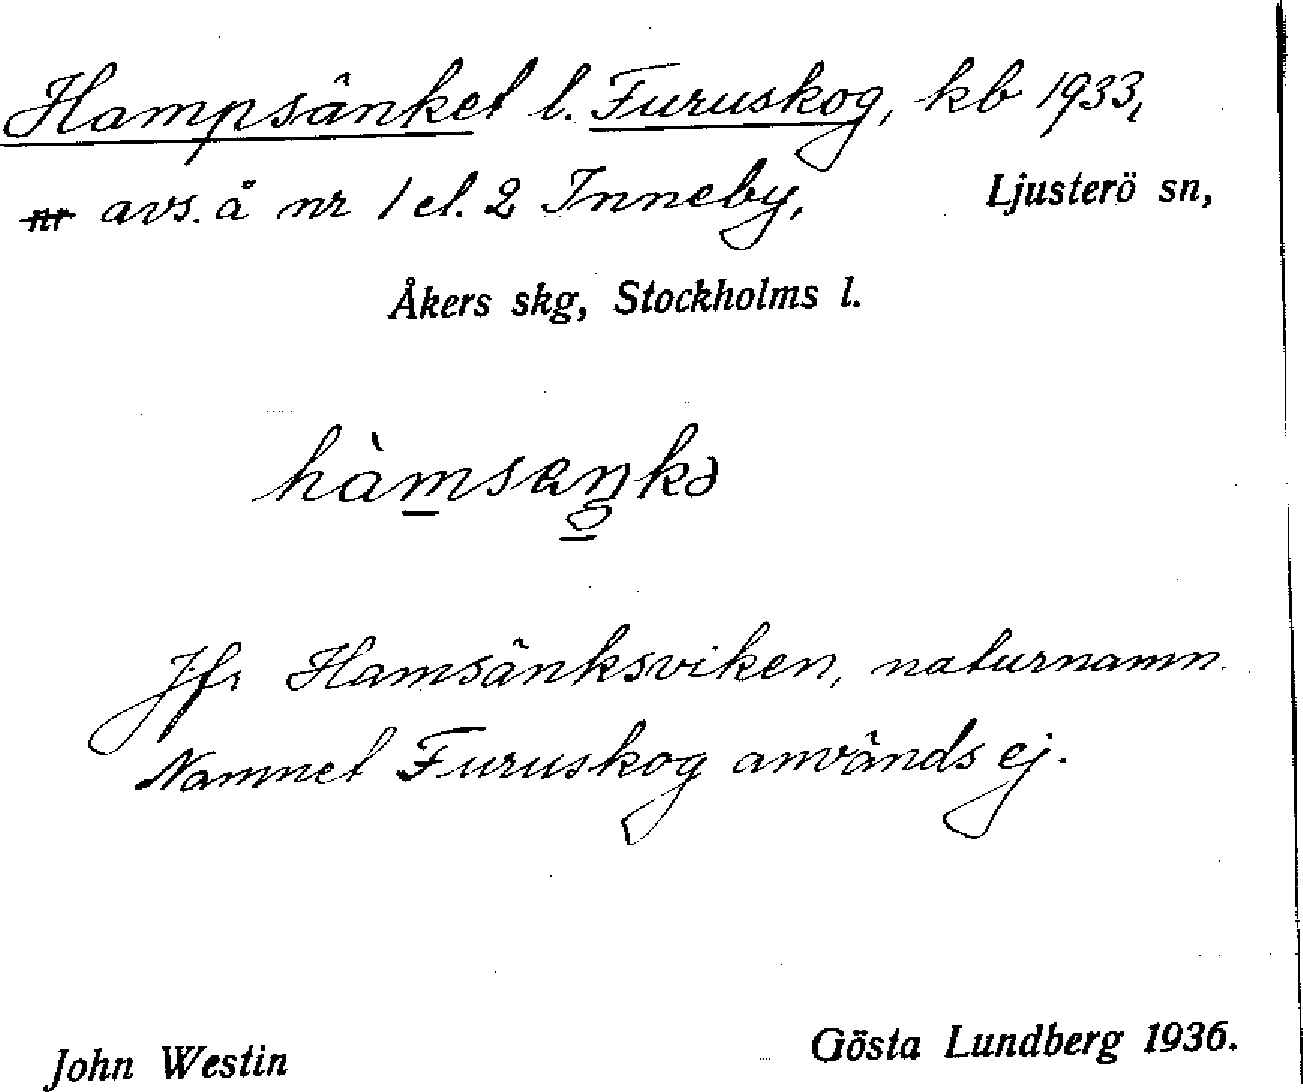 Hampsänket l. Furuskog, kb 1933,
nr avs. å nr 1 el. 2 Inneby, Ljusterö sn,
Åkers skg, Stockholms l.
hàmsaŋkə
Jfr Hamsänksviken, naturnamn.
Namnet Furuskog används ej.
John Westin Gösta Lundberg 1936.